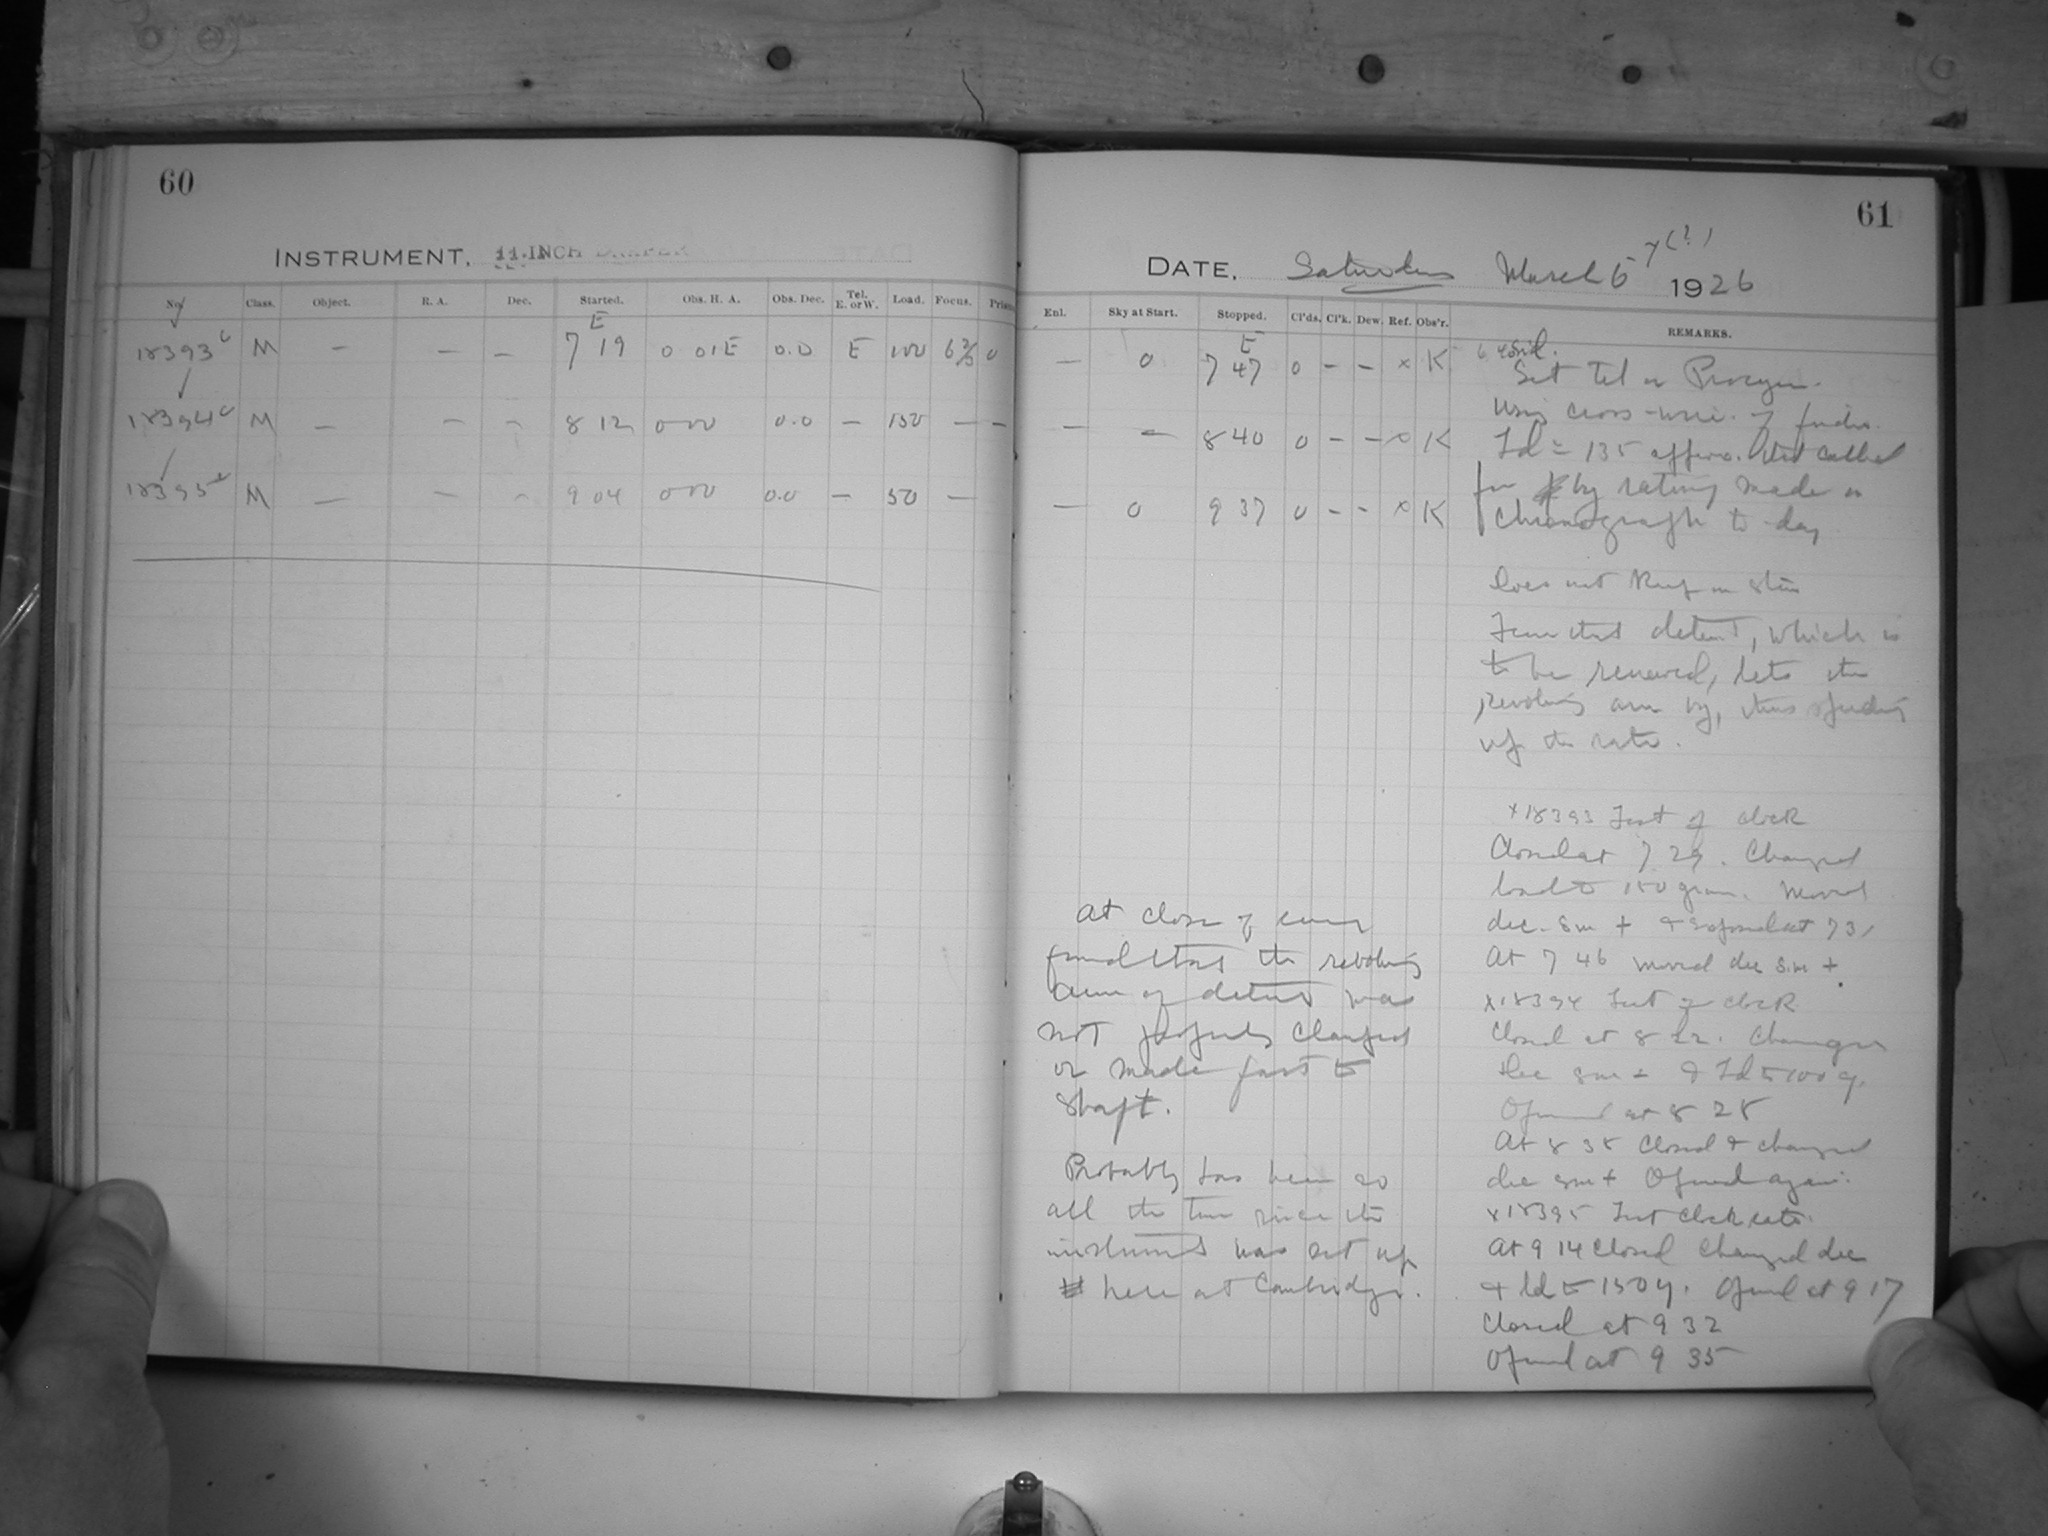 60
INSTRUMENT. 11-INCH DRAPER
No. Class. Object. R. A. Dec. Started. Obs. H. A. Obs. Dec. Tel. E. or W. Load. Focus.
E
18393 M – – – 7 19 0 01E 0.0 E 100 0
18394 M – – – 8 12 0 00 0.0 – 150 – –
18395 M – – – 9 04 0 00 0.0 – 50 –
61
DATE. Saturday March 1926
Enl. Sky at Start. Stopped. Cl'ds. Cl'k. Dew. Ref. Obs'r. REMARKS.
E
– 0 7 47 0 – – x K
– – 8 40 0 – – K
– 0 9 37 0 – – x K
Set Tel on Procyon.
Using cross-wire of finder.
Ld = 135 approx. that called
for by rating made on
chronograph to-day
Does not keep on star
Fear that detent, which is
to be renewed, lets the
revolving arm by, thus speeding
up the rate.
x18393 Test of clock
Closed at 7 29. Changed
load to 150 gram. Moved
dec. sm + & opened at 7 31
At 7 46 moved dec s.m +
x18394 Test of clock
Closed at 8 22. Changed
dec sm + & Ld to 100 g.
Opened at 8 28
At 8 38 Closed & changed
dec sm + Opened again.
x18395 Test Clock rate.
At 9 14 Closed Changed dec
& ld to 150 g. Opened at 9 17
Closed at 9 32
Opened at 9 35
At close of
found that the revolving
arm of detent was
not properly clamped
or made fast to
shaft.
Probably has been so
all the time since the
instrument was set up
here at Cambridge.